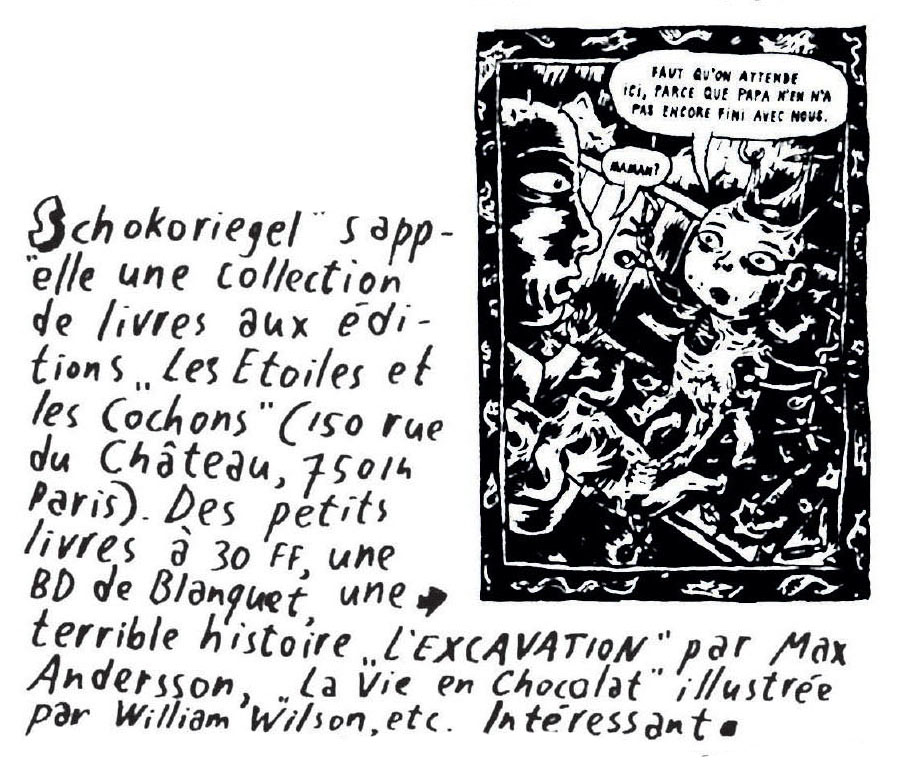 FAUT QU'ON ATTENDE
ICI, PARCE QUE PAPA N'EN N'A
PAS ENCORE FINI AVEC NOUS.
MAMAN?
Schokoriegel" s app-
"elle une collection
de livres aux édi-
tions „Les Etoiles et
les Cochons" (150 rue
du Château, 75014
Paris). Des petits
livres à 30 FF, une
BD de Blanquet, une
terrible histoire „L'EXCAVATION" par Max
Andersson, „La Vie en Chocolat" illustrée
par William Wilson, etc. Intéressant.